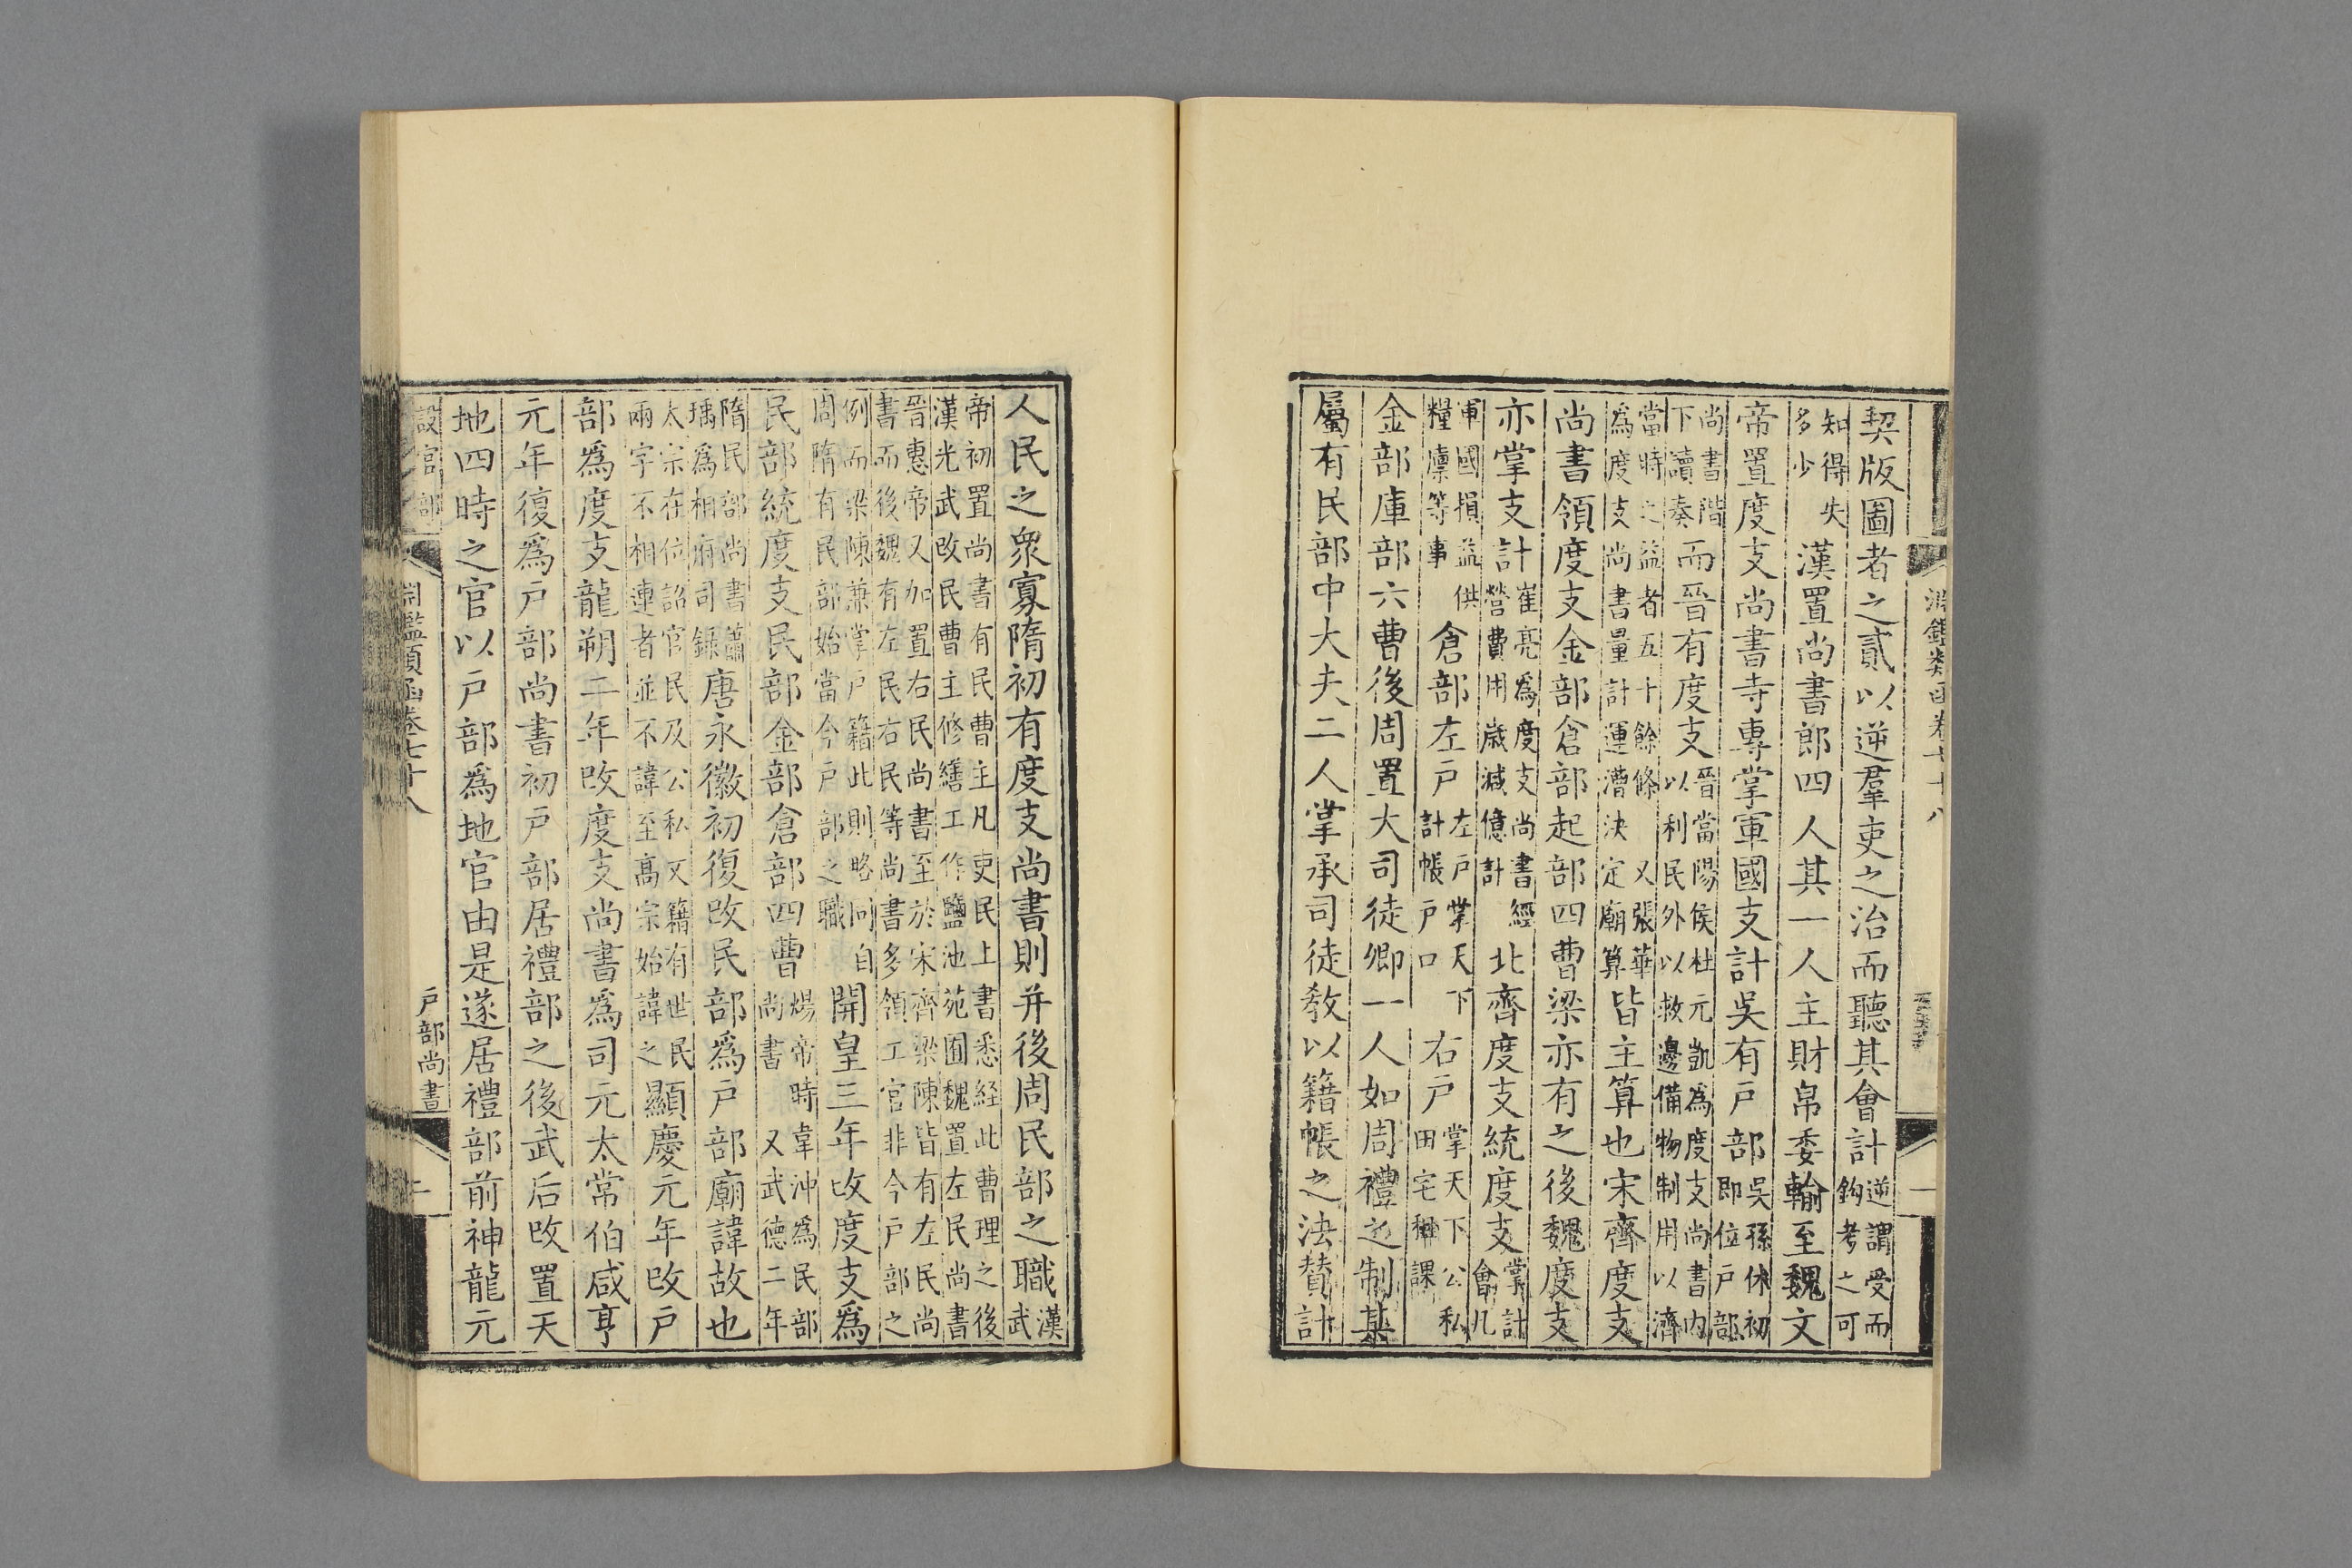 淵鑑類函卷七十八
一
契版圖者之貳以逆羣吏之治而聽其會計逆謂受而鈎考之可
知得失多少漢置尚書郎四人其一人主財帛委輸至魏文
帝置度支尚書寺專掌軍國支計吳有戶部吳孫休初即位戶部
尚書階下讀奏而晉有度支晉當陽侯杜元凱為度支尚書内以利民外以救邊備物制用以濟
當時之益者五十餘條又張華為度支尚書量計運漕決定廟算皆主算也宋齊度支
尚書領度支金部倉部起部四曹梁亦有之後魏度支
亦掌支計崔亮為度支尚書經營費用歲減億計北齊度支統度支掌計會凡
軍國損益供糧廩等事倉部左戶左戶掌天下計帳戶口右戶掌天下公私田宅租課
金部庫部六曹後周置大司徒卿一人如周禮之制其
屬有民部中大夫二人掌承司徒敎以籍帳之法贊計
人民之衆寡隋初有度支尚書則并後周民部之職漢武
帝初置尚書有民曹主凡吏民上書悉經此曹理之後漢光武改民曹主修繕工作鹽池苑囿魏置左民尚書
晉惠帝又加置右民尚書至於宋齊梁陳皆有左民尚書而後魏有左民右民等尚書多領工官非今戶部之
例而梁陳兼掌戶籍此則略同自周隋有民部始當今戶部之職開皇三年改度支為
民部統度支民部金部倉部四曹煬帝時韋沖為民部尚書又武德二年
隋民部尚書蕭瑀為相府司錄唐永徽初復改民部為戶部廟諱故也
太宗在位詔官民及公私文籍有世民兩字不相連者並不諱至高宗始諱之顯慶元年改戶
部為度支龍朔二年改度支尚書為司元太常伯咸亨
元年復為戶部尚書初戶部居禮部之後武后改置天
地四時之官以戶部為地官由是遂居禮部前神龍元
淵鑑類函卷七十八
設官部
戶部尚書
二